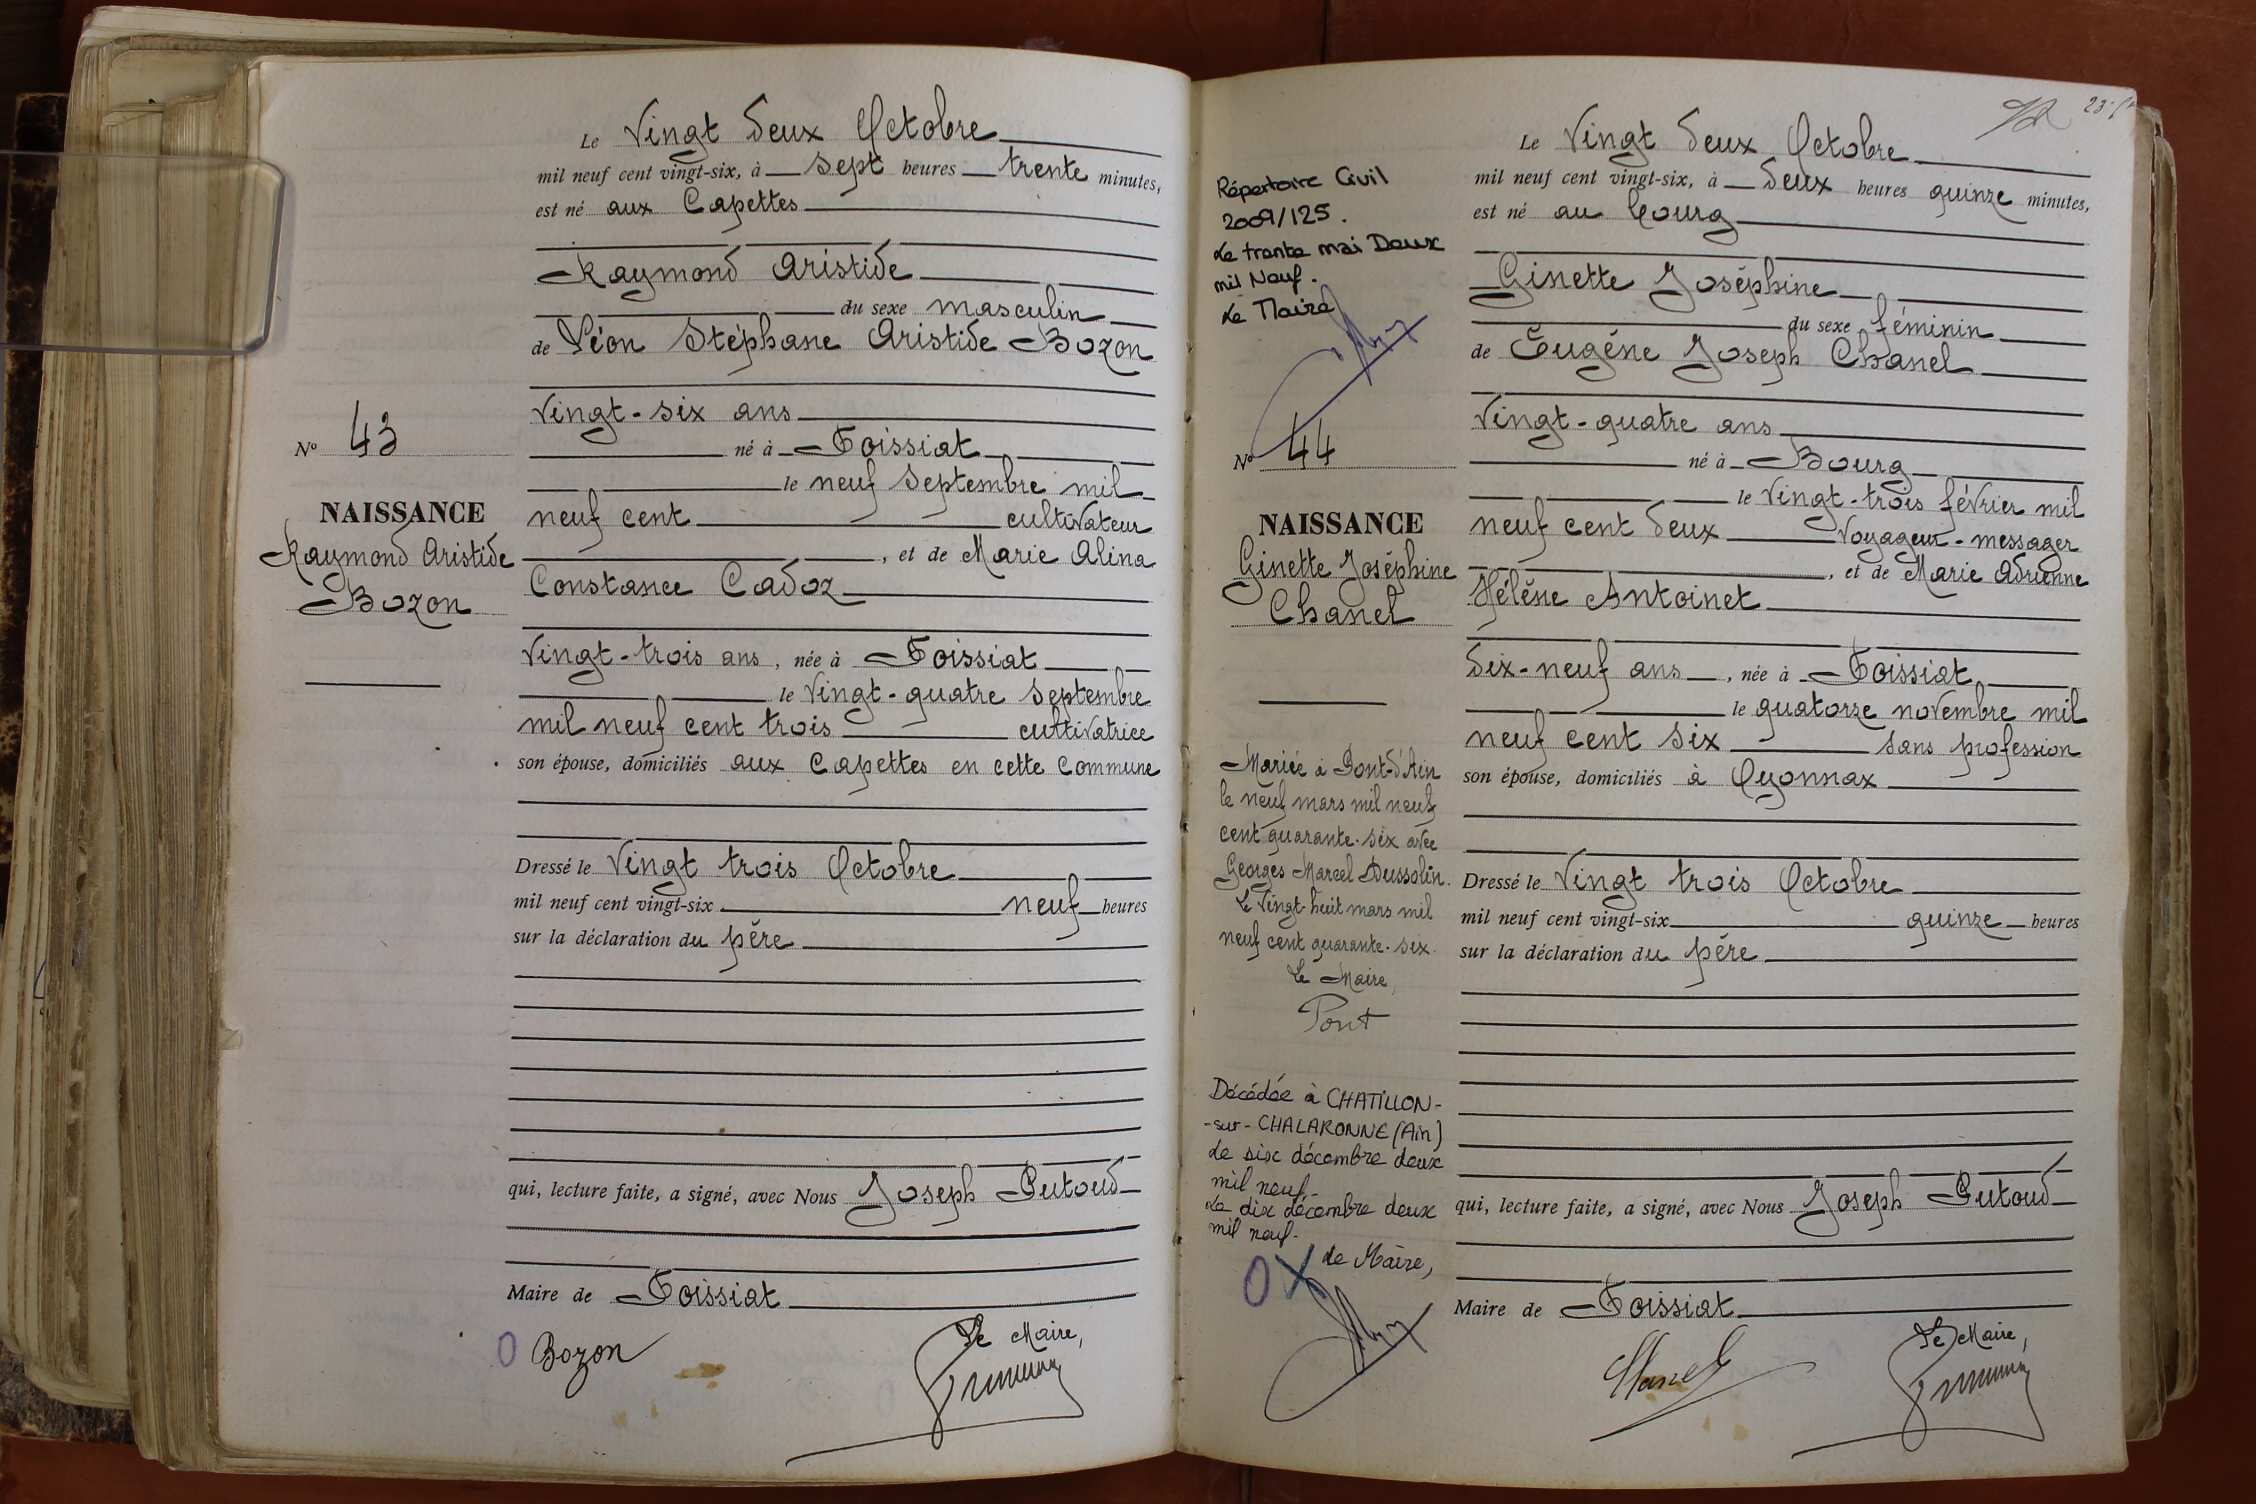 Le Vingt deux Octobre
mil neuf cent vingt-six, à sept heures trente minutes,
est né aux Capettes
Raymond Aristide
du sexe masculin
de Léon Stéphane Aristide Bozon
Vingt-six ans
né à Foissiat
le neuf Septembre mil
neuf cent cultivateur
, et de Marie Alina
Constance Cadoz
Vingt-trois ans, née à Foissiat
le Vingt-quatre Septembre
mil neuf cent trois cultivatrice
son épouse, domiciliés aux Capettes en cette Commune
Dressé le Vingt trois Octobre
mil neuf cent vingt-six neuf heures
sur la déclaration du père
qui, lecture faite, a signé, avec Nous Joseph Putoud
Maire de Foissiat
Le Maire,
O Bozon
No 43
NAISSANCE
Raymond Aristide
Bozon
23
Le Vingt deux Octobre
mil neuf cent vingt-six, à deux heures quinze minutes,
est né au bourg
Ginette Joséphine
du sexe féminin
de Eugène Joseph Chanel
Vingt-quatre ans
né à Bourg
le Vingt-trois février mil
neuf cent deux Voyageur-messager
, et de Marie Adrienne
Hélène Antoinet
Dix-neuf ans, née à Foissiat
le quatorze novembre mil
neuf cent six sans profession
son épouse, domiciliés à Oyonnax
Dressé le Vingt trois Octobre
mil neuf cent vingt-six quinze heures
sur la déclaration du père
qui, lecture faite, a signé, avec Nous Joseph Putoud
Maire de Foissiat
Le Maire,
Chanel
Répertoire Civil
2009/125.
Le trente mai Deux
mil Neuf.
Le Maire
No 44
NAISSANCE
Ginette Joséphine
Chanel
Mariée à Pont-d'Ain
le neuf mars mil neuf
cent quarante-six avec
Georges Marcel Dussolin.
Le Vingt-huit mars mil
neuf cent quarante-six.
Le Maire,
Pont
Décédée à CHATILLON-
-sur-CHALARONNE (Ain)
le six décembre deux
mil neuf-
Le dix décembre deux
mil neuf-
Le Maire,
OX